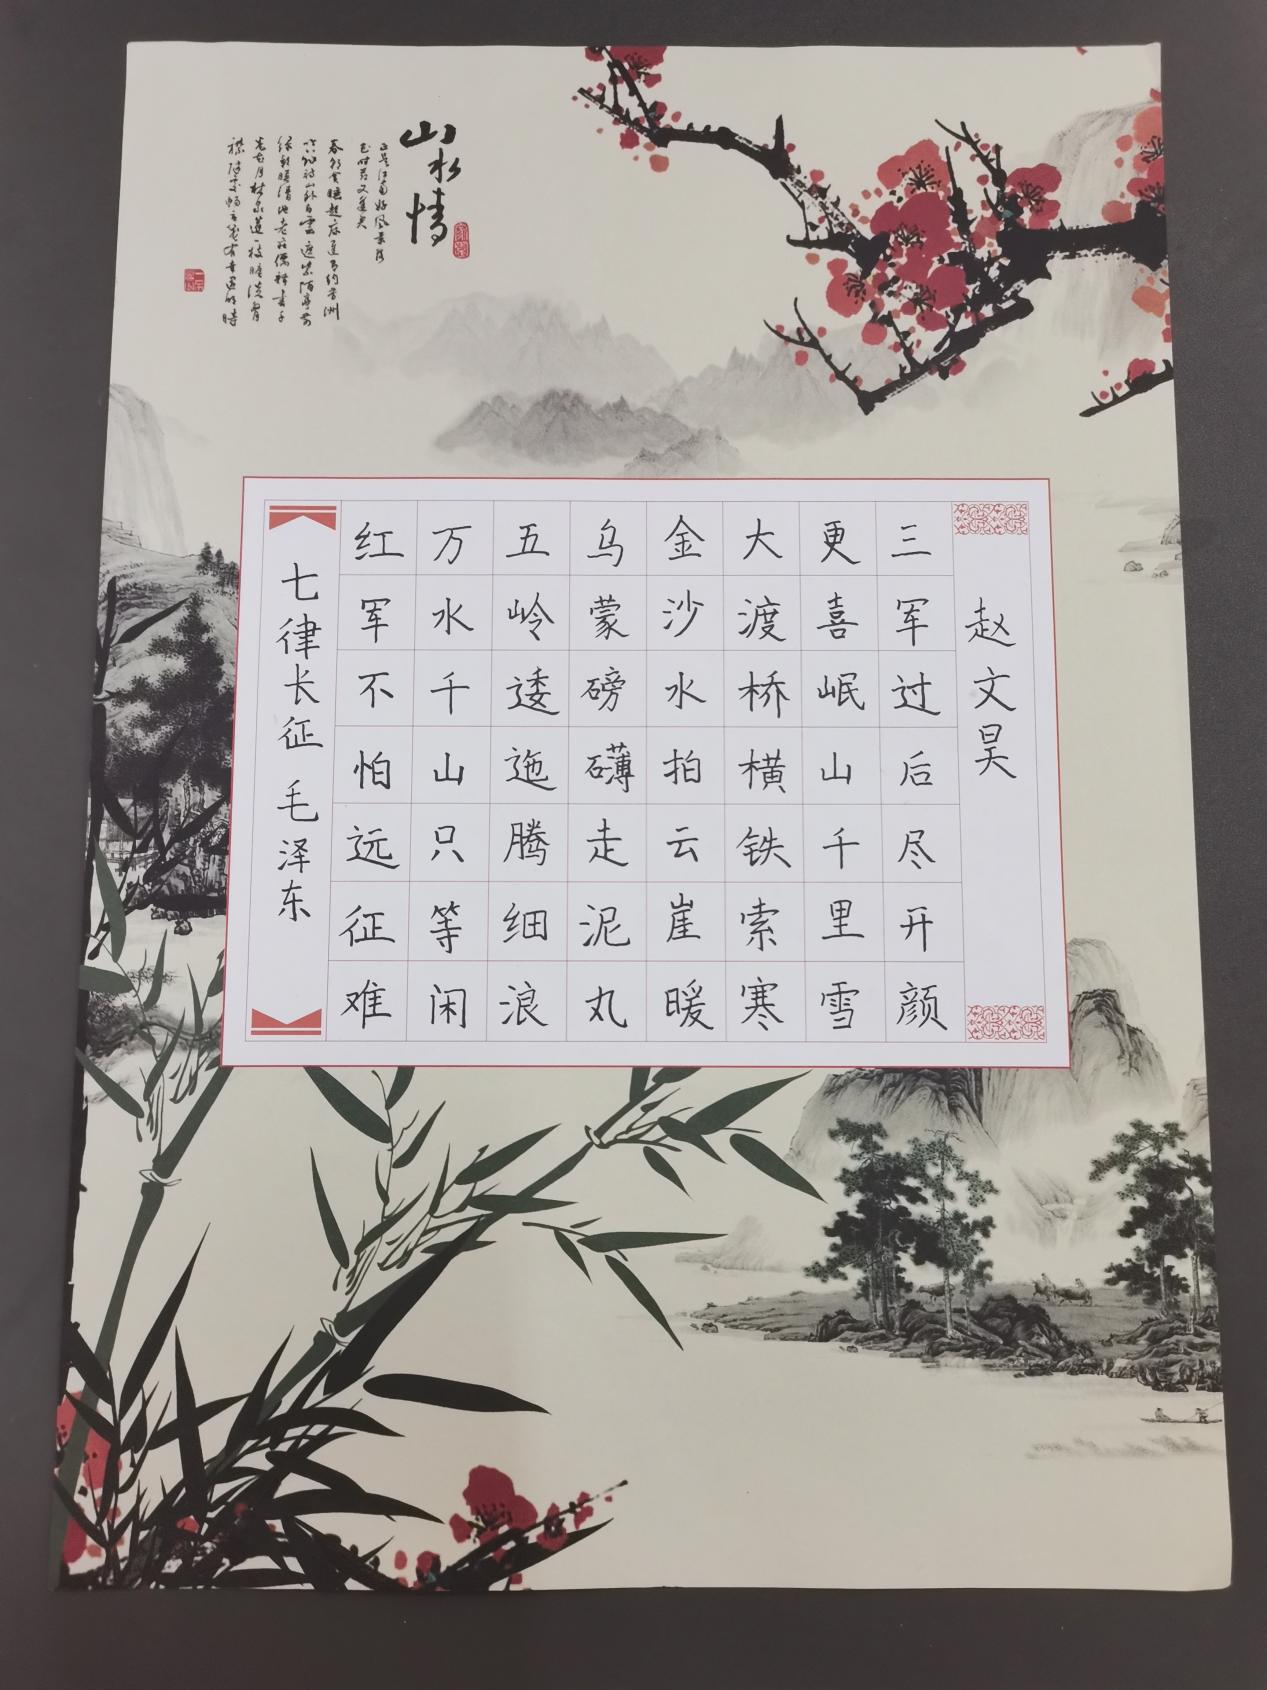 山水情
七律长征 毛泽东
红军不怕远征难
万水千山只等闲
五岭逶迤腾细浪
乌蒙磅礴走泥丸
金沙水拍云崖暖
大渡桥横铁索寒
更喜岷山千里雪
三军过后尽开颜
赵文昊